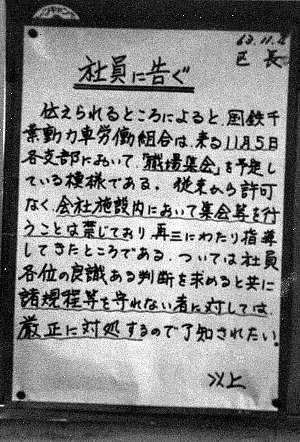 63.11.2
区長
社員に告ぐ
伝えられるところによると、国鉄千
葉動力車労働組合は、来る11月5日
各支部において、「職場集会」を予定し
ている模様である。従来から許可
なく、会社施設内において集会等を行
うことは禁じており、再三にわたり指導
してきたところである。ついては社員
各位の良識ある判断を求めると共に
諸規程等を守れない者に対しては、
厳正に対処するので了知されたい。
以上